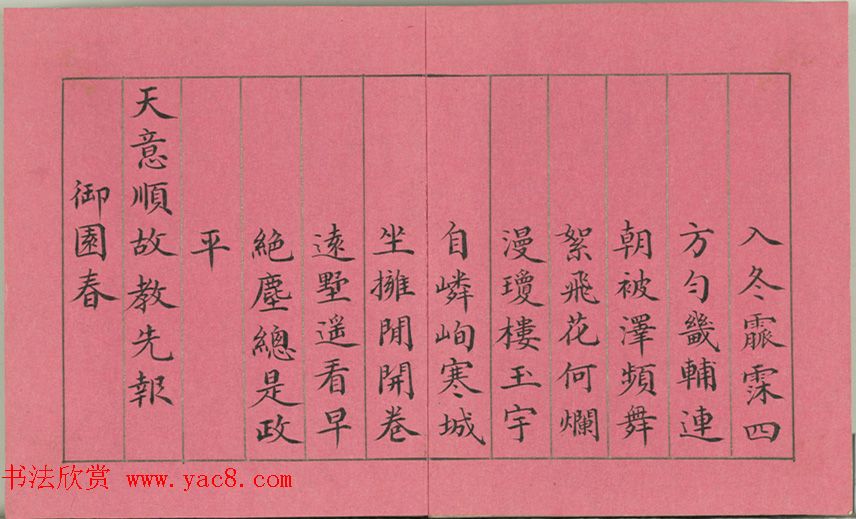 入冬霢霂四
方勻畿輔連
朝被澤頻舞
絮飛花何爛
漫瓊樓玉宇
自嶙峋寒城
坐擁閒開卷
遠墅遥看早
絶塵總是政
平
天意順故教先報
御園春
书法欣赏 www.yac8.com